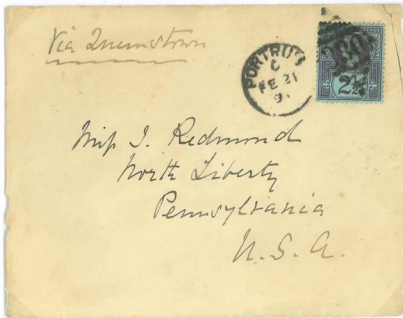 Via Queenstown
PORTRUSH
C
FE 21
9
2½
Miss J. Redmond
North Liberty
Pennsylvania
U.S.A.